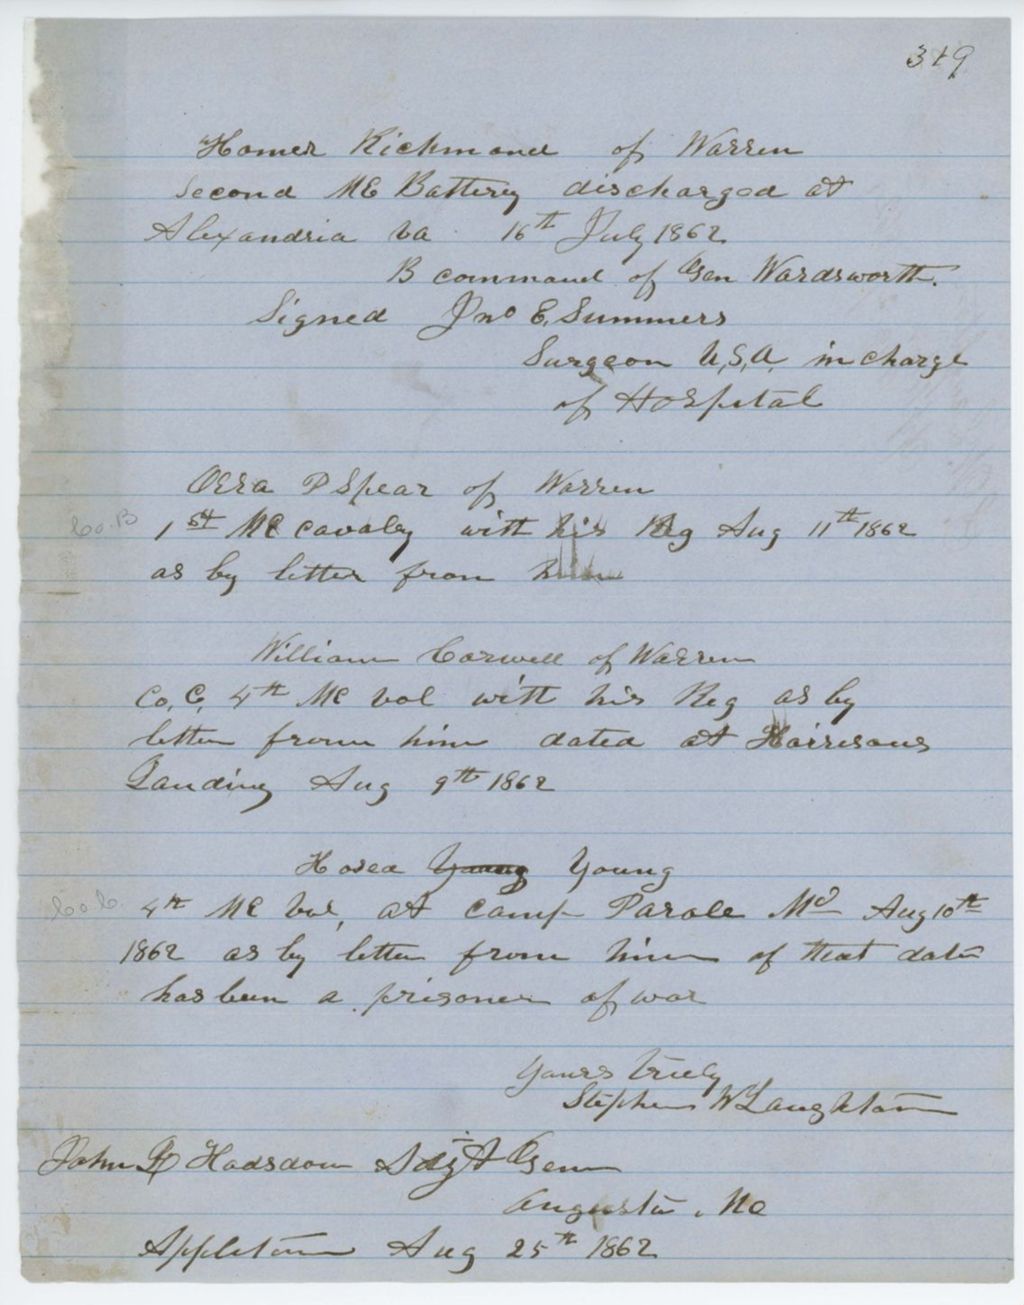 319
Homer Richmond of Warren
Second ME Battery discharged at
Alexandria Va 16th July 1862
B command of Gen Wardsworth.
Signed Jno E. Summers
Surgeon U.S.A. in charge
of Hospital
Orra P Spear of Warren
Co. B
1st ME cavalry with his Reg Aug 11th 1862
as by letter from him
William Carwell of Warren
Co. C, 4th ME vol with his Reg as by
letter from him dated at Harrisons
Landing Aug 9th 1862
Hosea Young Young
Co C.
4th ME Vol, at camp Parole Md Aug 10th
1862 as by letter from him of that date
has been a prisoner of war
Yours truly
Stephen W Laughton
John L Hodsdon Adjt Gen
Augusta, Me
Appleton Aug 25th 1862